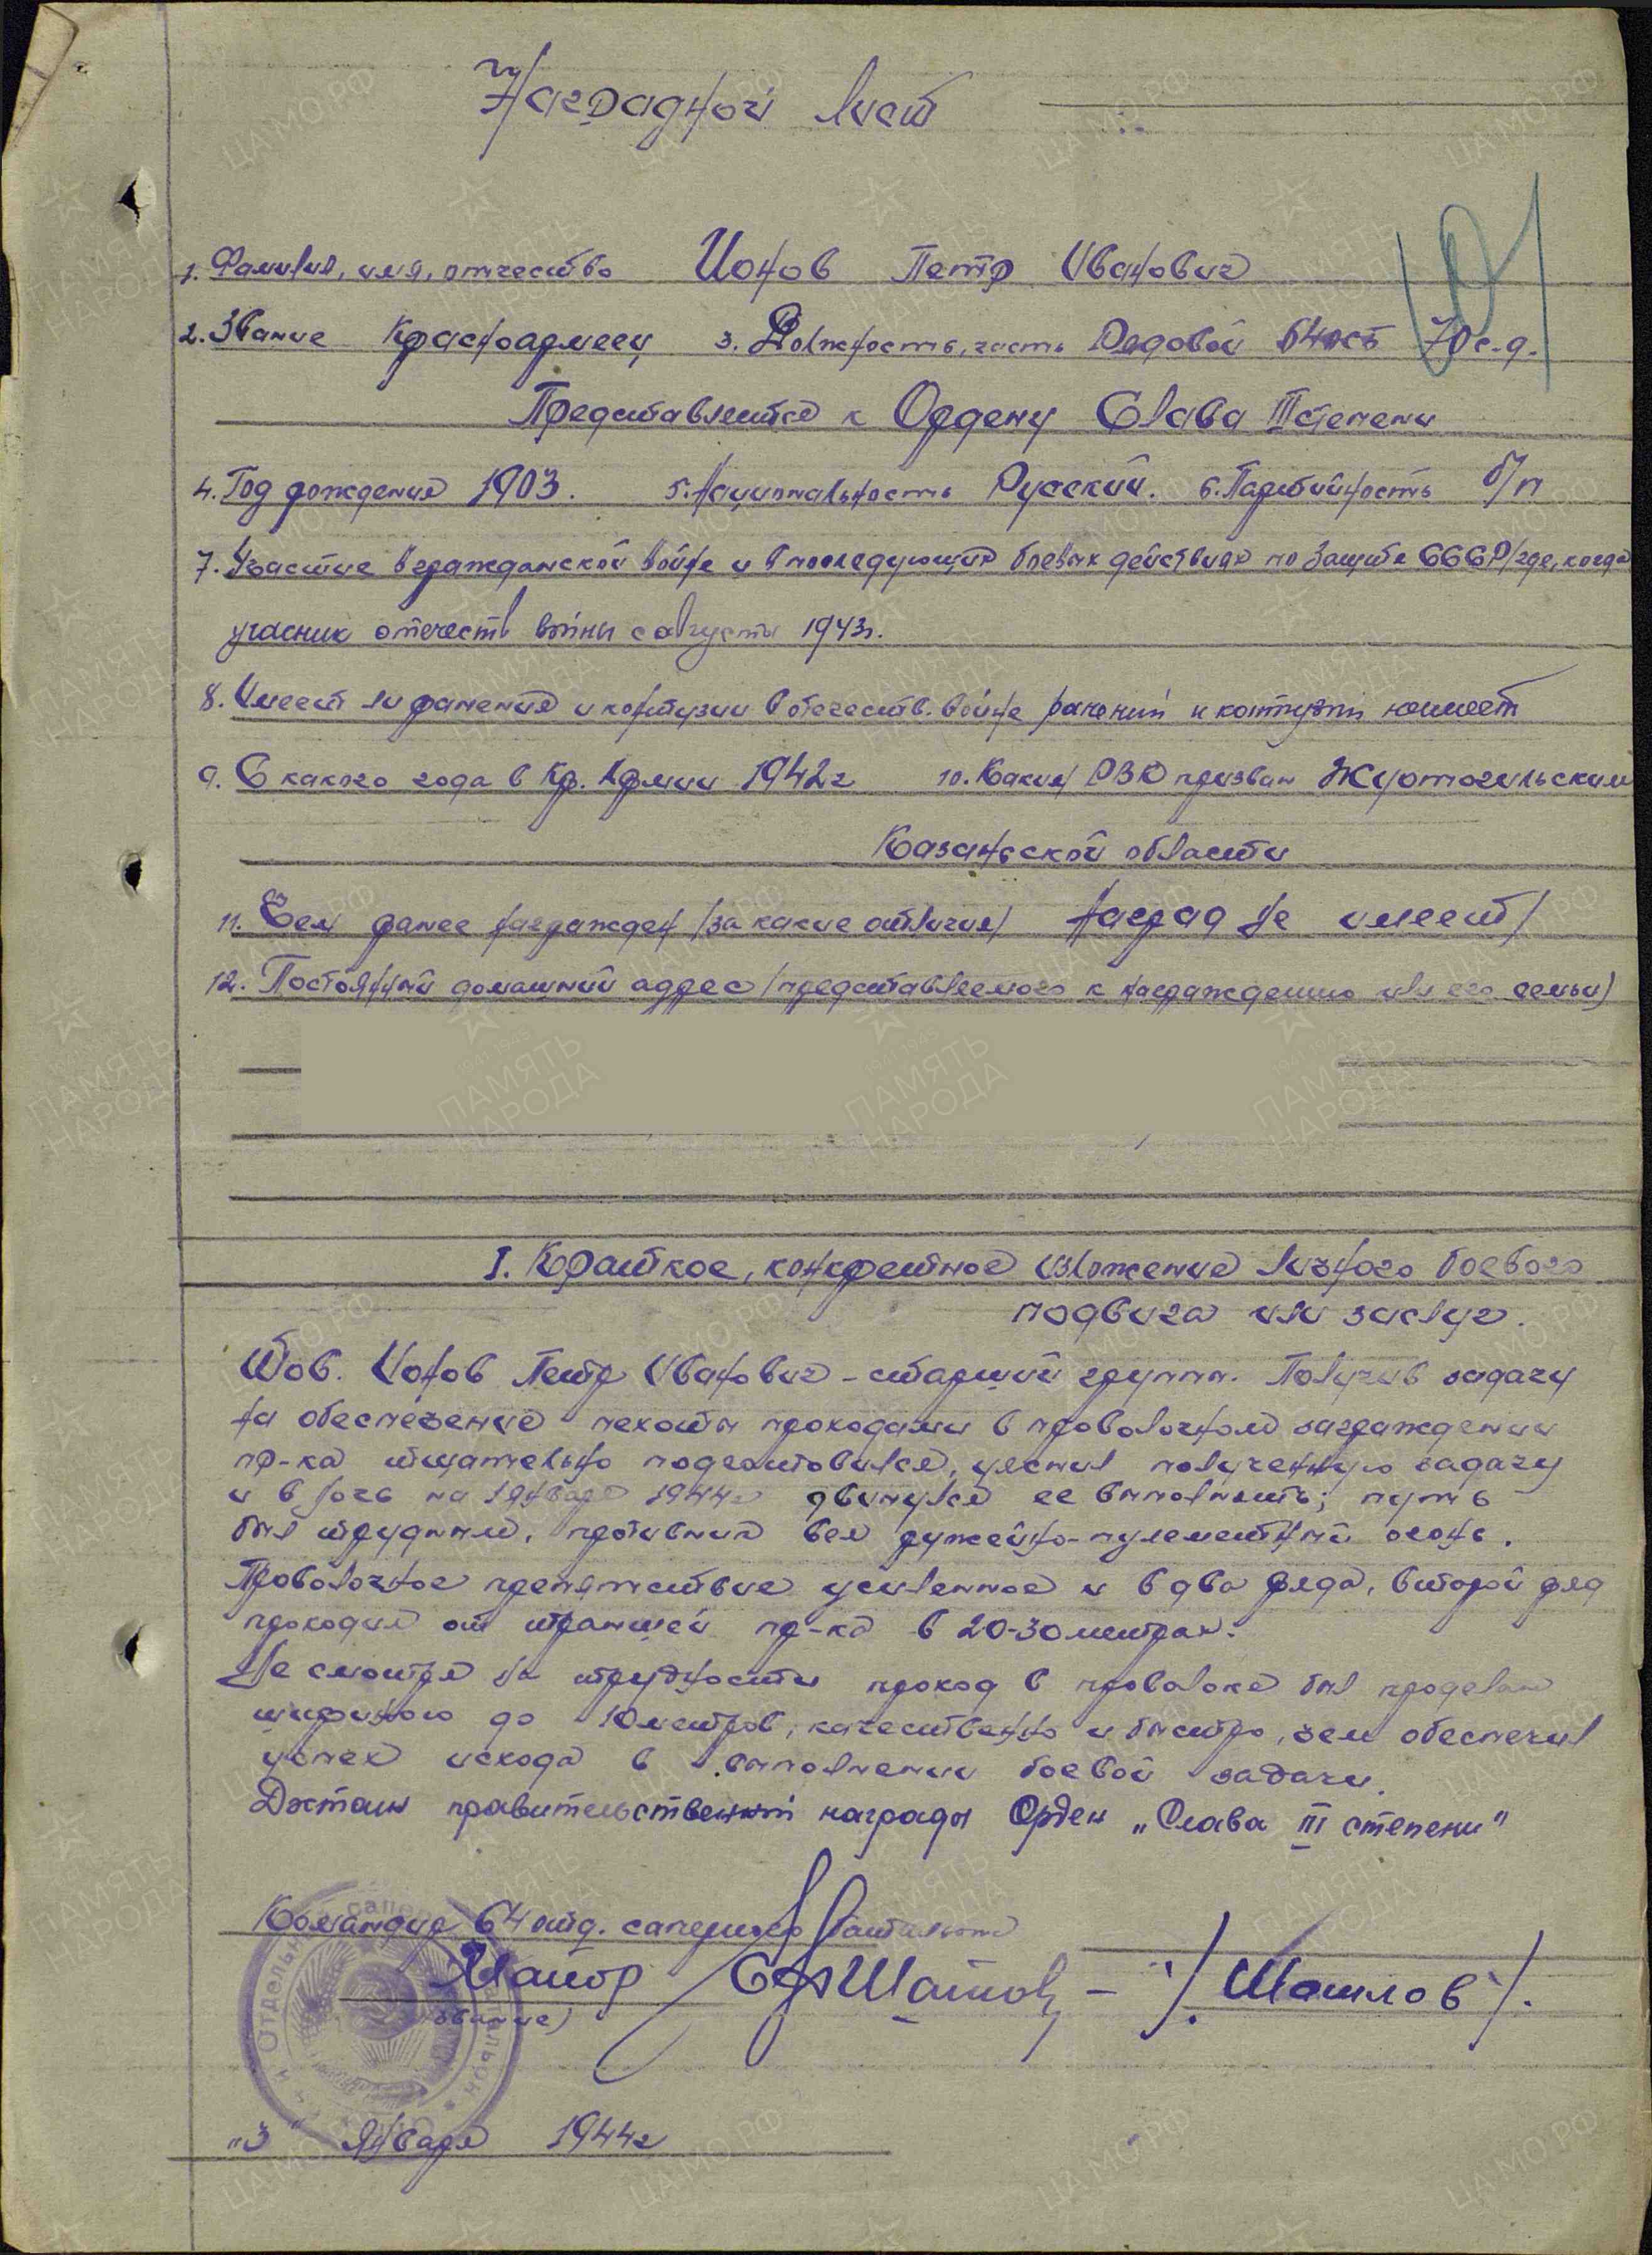 Наградной лист
1. Фамилия, имя, отчество Ионов Петр Иванович
2. Звание Красноармеец 3. Должность, часть Рядовой 64 осб 70 с.д.
Представляется к Ордену Слава III степени
4. Год рождения 1903. 5. Национальность Русский. 6. Партийность б/п
7. Участие в гражданской войне и в последующих боевых действиях по защите СССР /где, когда
учасник отечеств войны с августа 1943г.
8. Имеет ли ранения и контузии в отечеств. войне ранений и контузий неимеет
9. С какого года в Кр. Армии 1942г 10. Каким РВК призван
Казанской области
11. Чем ранее награжден /за какие отличия/ наград не имеет/
12. Постоянный домашний адрес /представляемого к награждению или его семьи)
I. Краткое, конкретное изложение личного боевого
подвига или заслуг.
Тов. Ионов Петр Иванович - старший группы. Получив задачу
на обеспечение пехоты проходами в проволочном заграждении
пр-ка тщательно подготовился, уяснил полученную задачу
и в ночь на 1 января 1944г двинулся ее выполнять; путь
был трудным, противник вел ружейно-пулеметный огонь.
Проволочное препятствие усиленное и в два ряда, второй ряд
проходил от траншей пр-ка в 20-30 метрах.
Не смотря на трудности проход в проволоке был проделан
шириною до 10 метров, качественно и быстро, чем обеспечил
успех исхода в выполнении боевой задачи.
Достоин правительственной награды Орден „Слава III степени"
Командир 64 отд. саперного батальона
Майор /Шатилов/.
(звание)
„3" Января 1944г